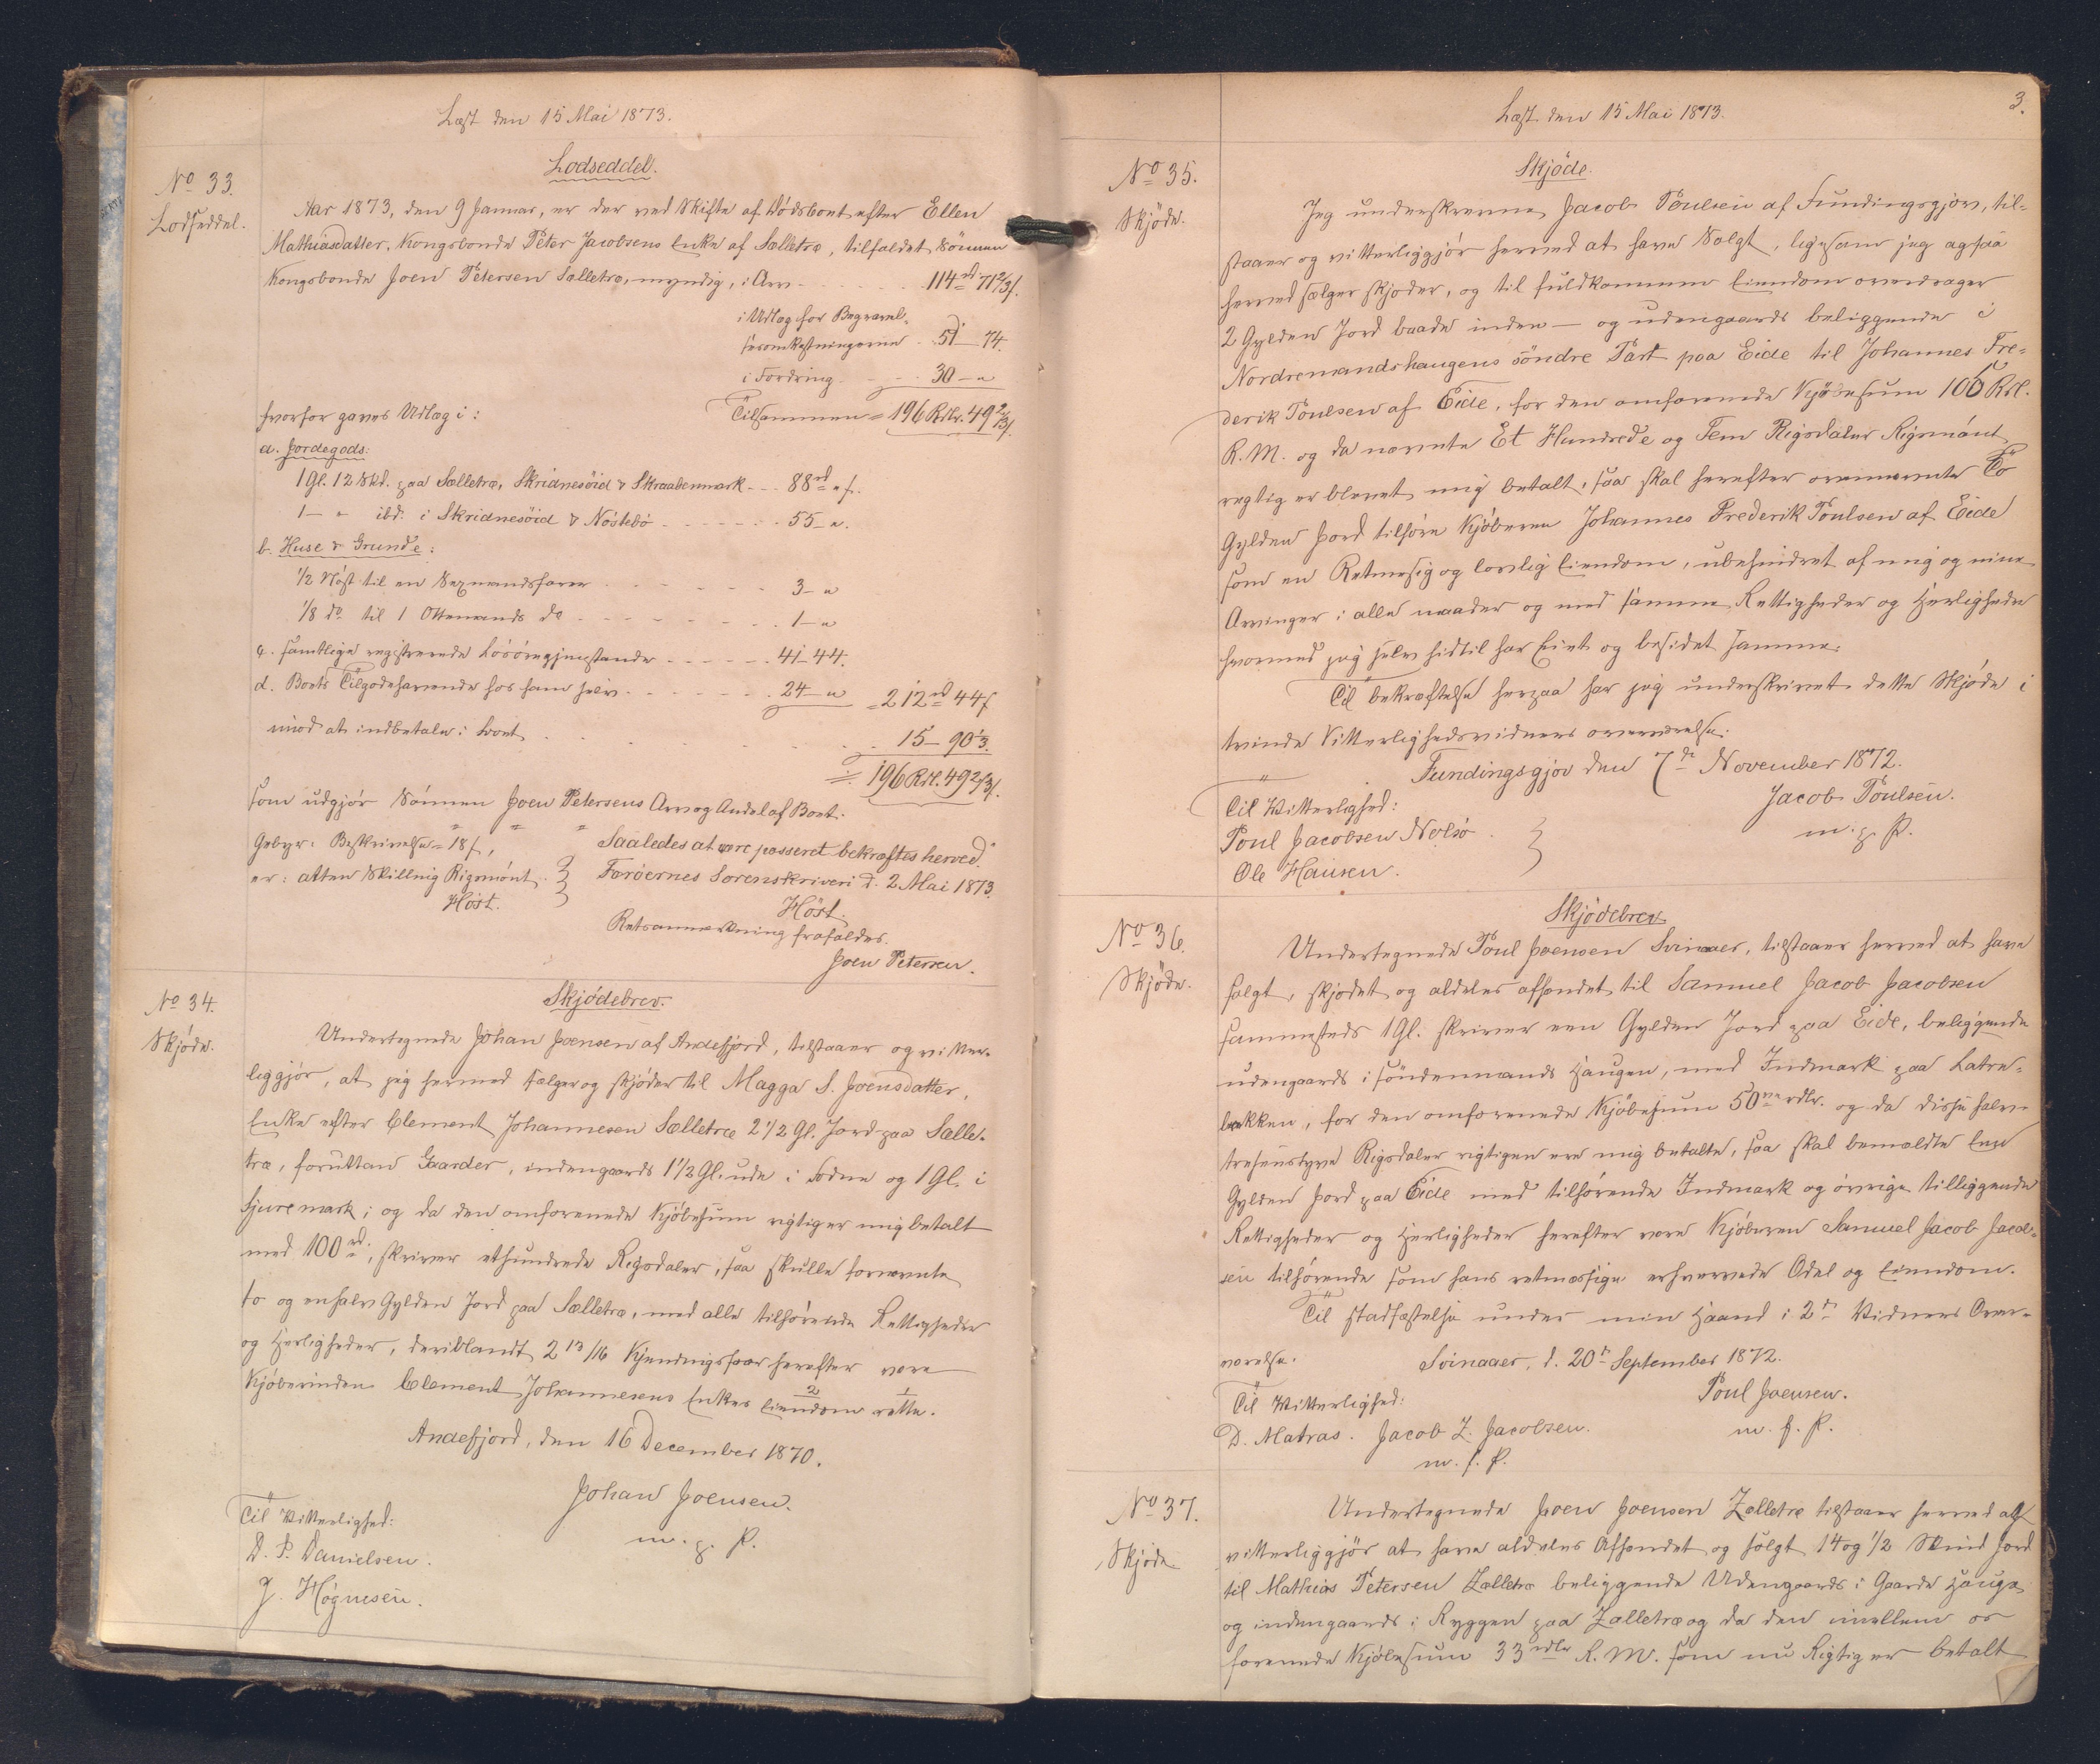 Læst den 15 Mai 1873.
No 33.
Lodseddel.
Lodseddel.
Aar 1873, den 9 Januar, er der ved Skifte af Dödsboet efter Ellen
Mathiasdatter, Kongsbonde Peter Jacobsens Enke af Sælletræ, tilfaldet Sönnen
Kongsbonde Joen Petersen Sælletræ, myndig, i Arv - - - 114 rd 71 2/3 s.
i Udlæg for Begravel-
sesomkostningerne - 51 - 74.
i Fordring - - - 30 - "
hvorfor gaves Udlæg i: Tilsammen = 196 Rdlr. 49 2/3 s.
a. Jordegods:
1 Gl. 12 Skd. paa Sælletræ, Skridnesöid & Skraabenmark - - 88 rd " s.
1 - " ibd. i Skridnesöid & Nöstebö - - - - - 55 - ".
b. Huse & Grunde:
1/2 Nöst til en Sexmandsfarer - - - - 3 - "
1/8 do til 1 Ottemands do - - - - - 1 - "
c. samtlige registrerede Lösöregjenstande - - - - - 41 - 44.
d. Boets Tilgodehavende hos ham selv - - - - - 24 - " = 212 rd 44 s
imod at indbetale i Boet - - - - - 15 - 90 1/3.
÷ 196 Rdl. 49 2/3 s.
som udgjör Sönnen Joen Petersens Arv og Andel af Boet.
Gebyr: Beskrivelse = 18 s, Saaledes at være passeret bekræftes herved.
er: atten Skilling Rigsmönt. Færöernes Sorenskriveri d. 2 Mai 1873.
Höst. Höst.
Retsanmærkning frafaldes.
Joen Petersen.
No 34.
Skjöde.
Skjödebrev.
Undertegnede Johan Joensen af Andefjord, tilstaaer og vitter-
liggjör, at jeg hermed sælger og skjöder til Magga S. Joensdatter,
Enke efter Clement Johannesen Sælletræ 2 1/2 Gl. Jord paa Sælle-
træ, foruttan Gaarder, indengaards 1 1/2 Gl. ude i Bodne og 1 Gl. i
Gjuremark; og da den omforenede Kjöbesum rigtig er mig betalt
med 100 rd., skriver ethundrede Rigsdaler, saa skulle fornævnte
to og en halv Gylden Jord paa Sælletræ, med alle tilhörende Rettigheder
og Herligheder, deriblandt 2 13/16 Kjendingsfaar herefter være
Kjöberinden Clement Johannesens Enkes Eiendom rette.
2 1
Andefjord, den 16 December 1870.
Johan Joensen.
m. p. P.
Til Vitterlighed:
D. P. Danielsen.
J. Högnesen.
3.
Læst den 15 Mai 1873.
No 35.
Skjöde.
Skjöde.
Jeg underskrevne Jacob Poulsen af Fundingsgjov, til-
staaer og vitterliggjör herved at have Solgt, ligesom jeg ogsaa
herved sælger skjöder, og til fuldkommen Eiendom overdrager
2 Gylden Jord baade inden - og udengaards beliggende i
Nordremandshaugens söndre Part paa Eide til Johannes Fre-
derik Poulsen af Eide, for den omforenede Kjöbesum 105 Rdl.
R. M. og da nævnte Et Hundrede og Fem Rigsdaler Rigsmönt
rigtig er blevet mig betalt, saa skal herefter ovennævnte To
Gylden Jord tilhöre Kjöberen Johannes Frederik Poulsen af Eide
som en Retmesig og lovlig Eiendom, ubehindret af mig og mine
Arvinger i alle maader og med samme Rettigheder og Herligheder
hvormed jeg selv hidtil har Eiet og besidet samme.
Til bekræftelse herpaa har jeg underskrivet dette Skjöde i
tvinde Vitterlighedsvidners overværelse.
Fundingsgjov den 7de November 1872.
Til Vitterlighed: Jacob Poulsen.
Poul Jacobsen Nolsö. m. p. P.
Ole Hansen.
No 36.
Skjöde.
Skjödebrev
Undertegnede Poul Joensen Svinaaer, tilstaaer herved at have
solgt, skjödet og aldeles afhændet til Samuel Jacob Jacobsen
sammesteds 1 Gl. skriver een Gylden Jord paa Eide, beliggende
udengaards i söndenmands Haugen, med Indmark paa Latra-
bakken, for den omforenede Kjöbesum 50 rdlr. og da disse halv-
tresenstyve Rigsdaler rigtigen ere mig betalte, saa skal bemældte Een
Gylden Jord paa Eide med tilhörende Indmark og övrige tilliggende
Rettigheder og Herligheder herefter være Kjöberen Samuel Jacob Jacob-
sen tilhörende som hans retmæssige erhvervede Odel og Eiendom.
Til Stadfæstelse under min Haand i 2de Vidners Over-
værelse. Svinaaer, d. 20de September 1872.
Til Vitterlighed: Poul Joensen.
D. Matras. Jacob Z. Jacobsen. m. f. P.
m. f. P.
No 37.
Skjöde
Undertegnede Joen Joensen Zelletræ tilstaaer herved at
vitterliggjör at have aldeles Afhændet og solgt 14 og 1/2 Skind Jord
til Mathias Petersen Zælletræ beliggende Udengaards i Gaarde Hauge
og indengaards i Ryggen paa Zælletræ og da den imellem os
forenede Kjöbesum 33 rdlr R. M. som nu Rigtig er betalt